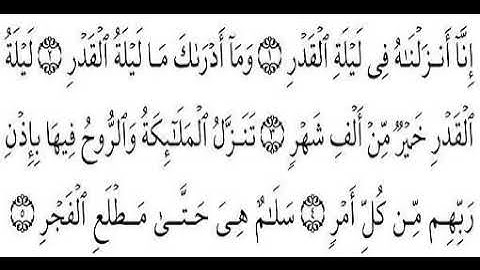 إِنَّآ أَنزَلْنَـٰهُ فِى لَيْلَةِ ٱلْقَدْرِ ۝١ وَمَآ أَدْرَىٰكَ مَا لَيْلَةُ ٱلْقَدْرِ ۝٢ لَيْلَةُ
ٱلْقَدْرِ خَيْرٌ مِّنْ أَلْفِ شَهْرٍ ۝٣ تَنَزَّلُ ٱلْمَلَـٰٓئِكَةُ وَٱلرُّوحُ فِيهَا بِإِذْنِ
رَبِّهِم مِّن كُلِّ أَمْرٍ ۝٤ سَلَـٰمٌ هِىَ حَتَّىٰ مَطْلَعِ ٱلْفَجْرِ ۝٥